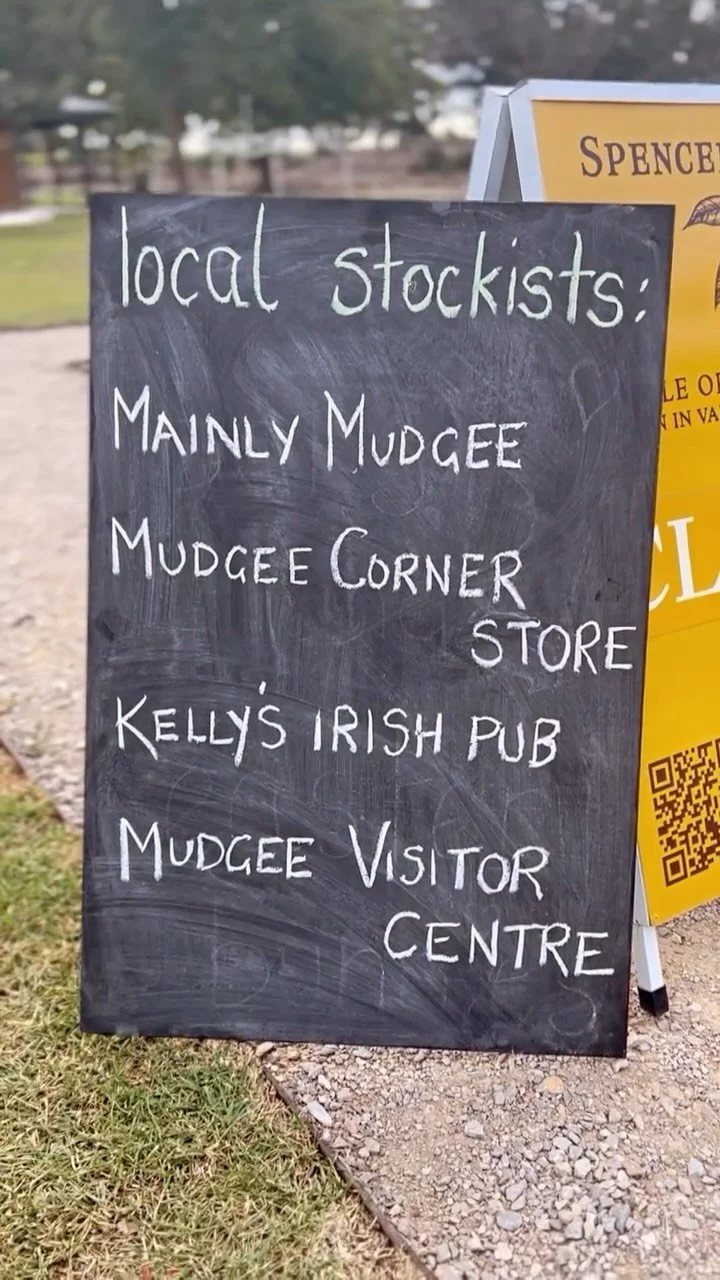 local stockists:
MAINLY MUDGEE
MUDGEE CORNER
STORE
KELLY'S IRISH PUB
MUDGEE VISITOR
CENTRE
SPENCE